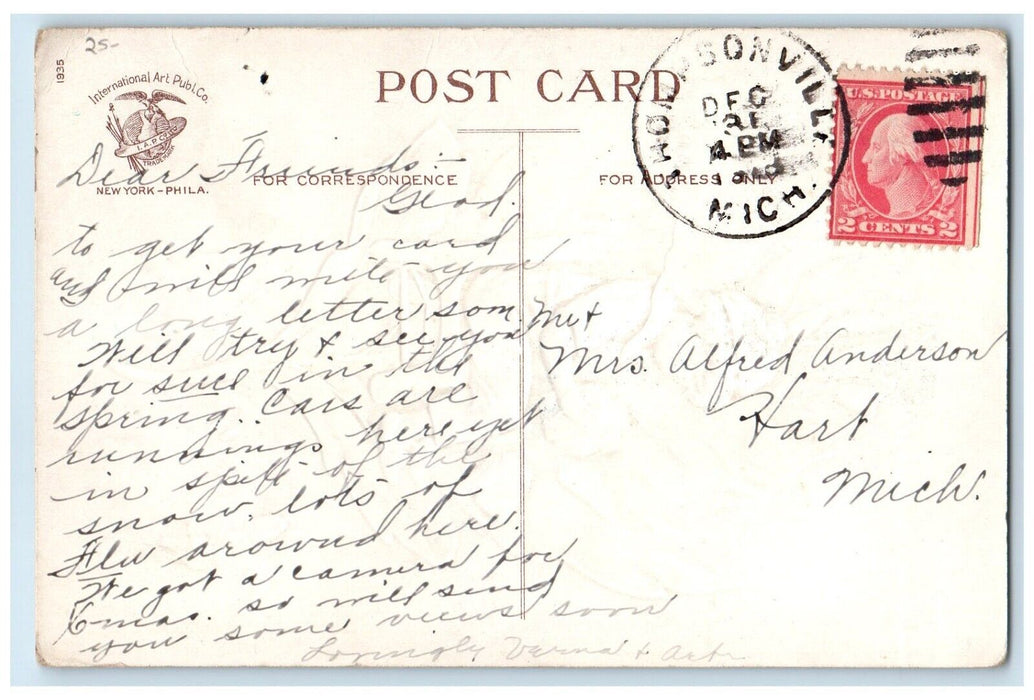 25-
1935
International Art Publ. Co.
I.A.P.CO.
TRADEMARK
NEW YORK-PHILA.
POST CARD
FOR CORRESPONDENCE
FOR ADDRESS ONLY
THOMPSONVILLE
DEC
4 PM
MICH.
U.S. POSTAGE
2 CENTS 2
Dear Friends:-
Glad
to get your card
and will write you
a long letter soon
Will try & see you
for sure in the
spring. Cars are
runnings here yet
in spite of the
snow. lots of
Flu around here.
We got a camera for
Xmas. so will send
you some views soon
Lovingly Verna & Art
Mr &
Mrs. Alfred Anderson
Hart
Mich.